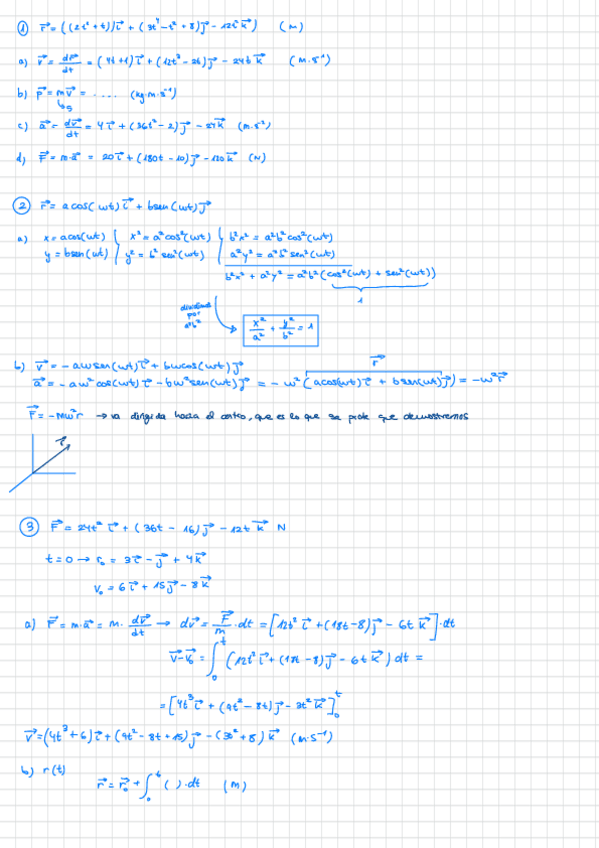 ① r⃗ = ((2t² + t)) i⃗ + (3t⁴ - t² + 8) j⃗ - 12t² k⃗ (m)
a) v⃗ = dr⃗/dt = (4t + 1) i⃗ + (12t³ - 2t) j⃗ - 24t k⃗ (m·s⁻¹)
b) p⃗ = m v⃗ = ..... (kg·m·s⁻¹)
↳ 5
c) a⃗ = dv⃗/dt = 4 i⃗ + (36t² - 2) j⃗ - 24 k⃗ (m·s⁻²)
d) F⃗ = m·a⃗ = 20 i⃗ + (180t - 10) j⃗ - 120 k⃗ (N)
② r⃗ = a cos(wt) i⃗ + b sen(wt) j⃗
a) x = a cos(wt) } x² = a² cos²(wt) } b²x² = a²b² cos²(wt)
y = b sen(wt) } y² = b² sen²(wt) } a²y² = a²b² sen²(wt)
b²x² + a²y² = a²b² (cos²(wt) + sen²(wt))
1
dividimos
por
a²b²
x²/a² + y²/b² = 1
b) v⃗ = -aw sen(wt) i⃗ + bw cos(wt) j⃗
r⃗
a⃗ = -aw² cos(wt) i⃗ - bw² sen(wt) j⃗ = -w² (a cos(wt) i⃗ + b sen(wt) j⃗) = -w² r⃗
F⃗ = -mw² r → va dirigida hacia el centro, que es lo que se pide que demostremos
r⃗
③ F⃗ = 24t² i⃗ + (36t - 16) j⃗ - 12t k⃗ N
t = 0 → r₀ = 3 i⃗ - j⃗ + 4 k⃗
v₀ = 6 i⃗ + 15 j⃗ - 8 k⃗
a) F⃗ = m·a⃗ = m· dv⃗/dt → dv⃗ = F⃗/m ·dt = [12t² i⃗ + (18t - 8) j⃗ - 6t k⃗]·dt
v⃗ - v⃗₀ = ∫₀ᵗ (12t² i⃗ + (18t - 8) j⃗ - 6t k⃗) dt =
= [4t³ i⃗ + (9t² - 8t) j⃗ - 3t² k⃗]₀ᵗ
v⃗ = (4t³ + 6) i⃗ + (9t² - 8t + 15) j⃗ - (3t² + 8) k⃗ (m·s⁻¹)
b) r(t)
r⃗ = r⃗₀ + ∫₀ᵗ ( )·dt (m)